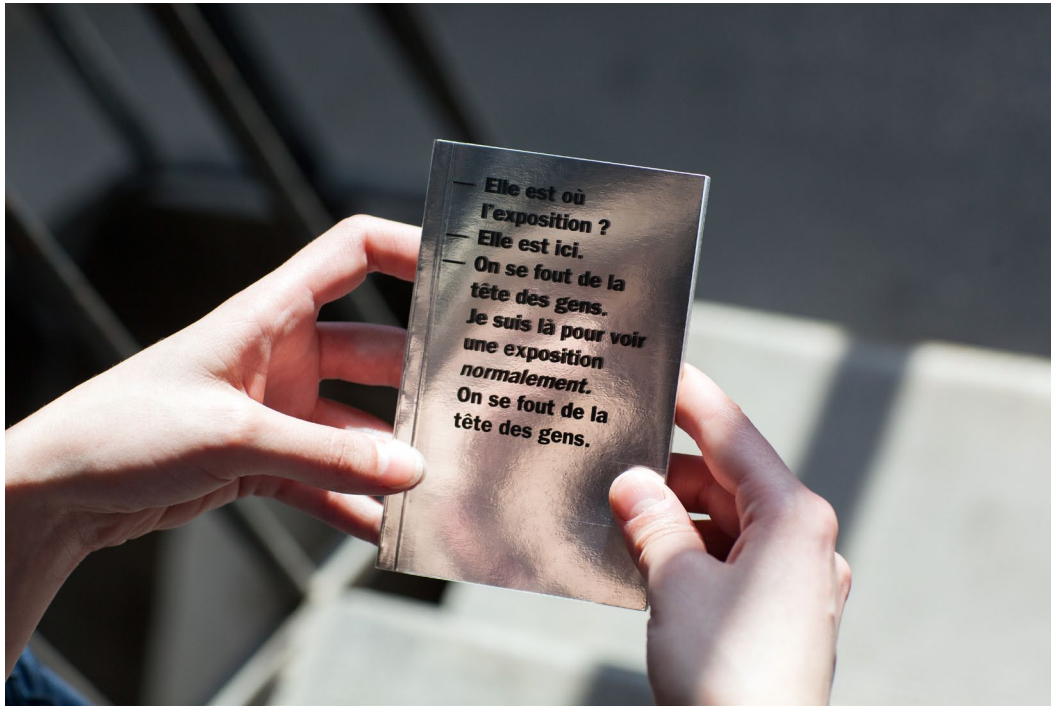 — Elle est où
l’exposition ?
— Elle est ici.
— On se fout de la
tête des gens.
Je suis là pour voir
une exposition
normalement.
On se fout de la
tête des gens.